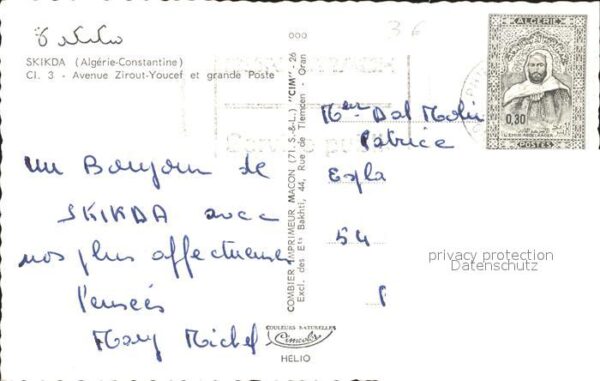 سكيكدة
000
36
SKIKDA (Algérie-Constantine)
Cl. 3 - Avenue Zirout-Youcef et grande Poste
un Bonjour de
SKIKDA avec
nos plus affectueuses
Pensées
Mary Michel
COMBIER IMPRIMEUR MACON (71 S.-&-L.) "CIM" - 26
Excl. des Ets Bakhti, 44, Rue de Tlemcen - Oran
ALGERIE
0,30
L'EMIR ABDELKADER
POSTES
Patrice
Espla
54
privacy protection
Datenschutz
COULEURS NATURELLES
Cimcolor
HELIO